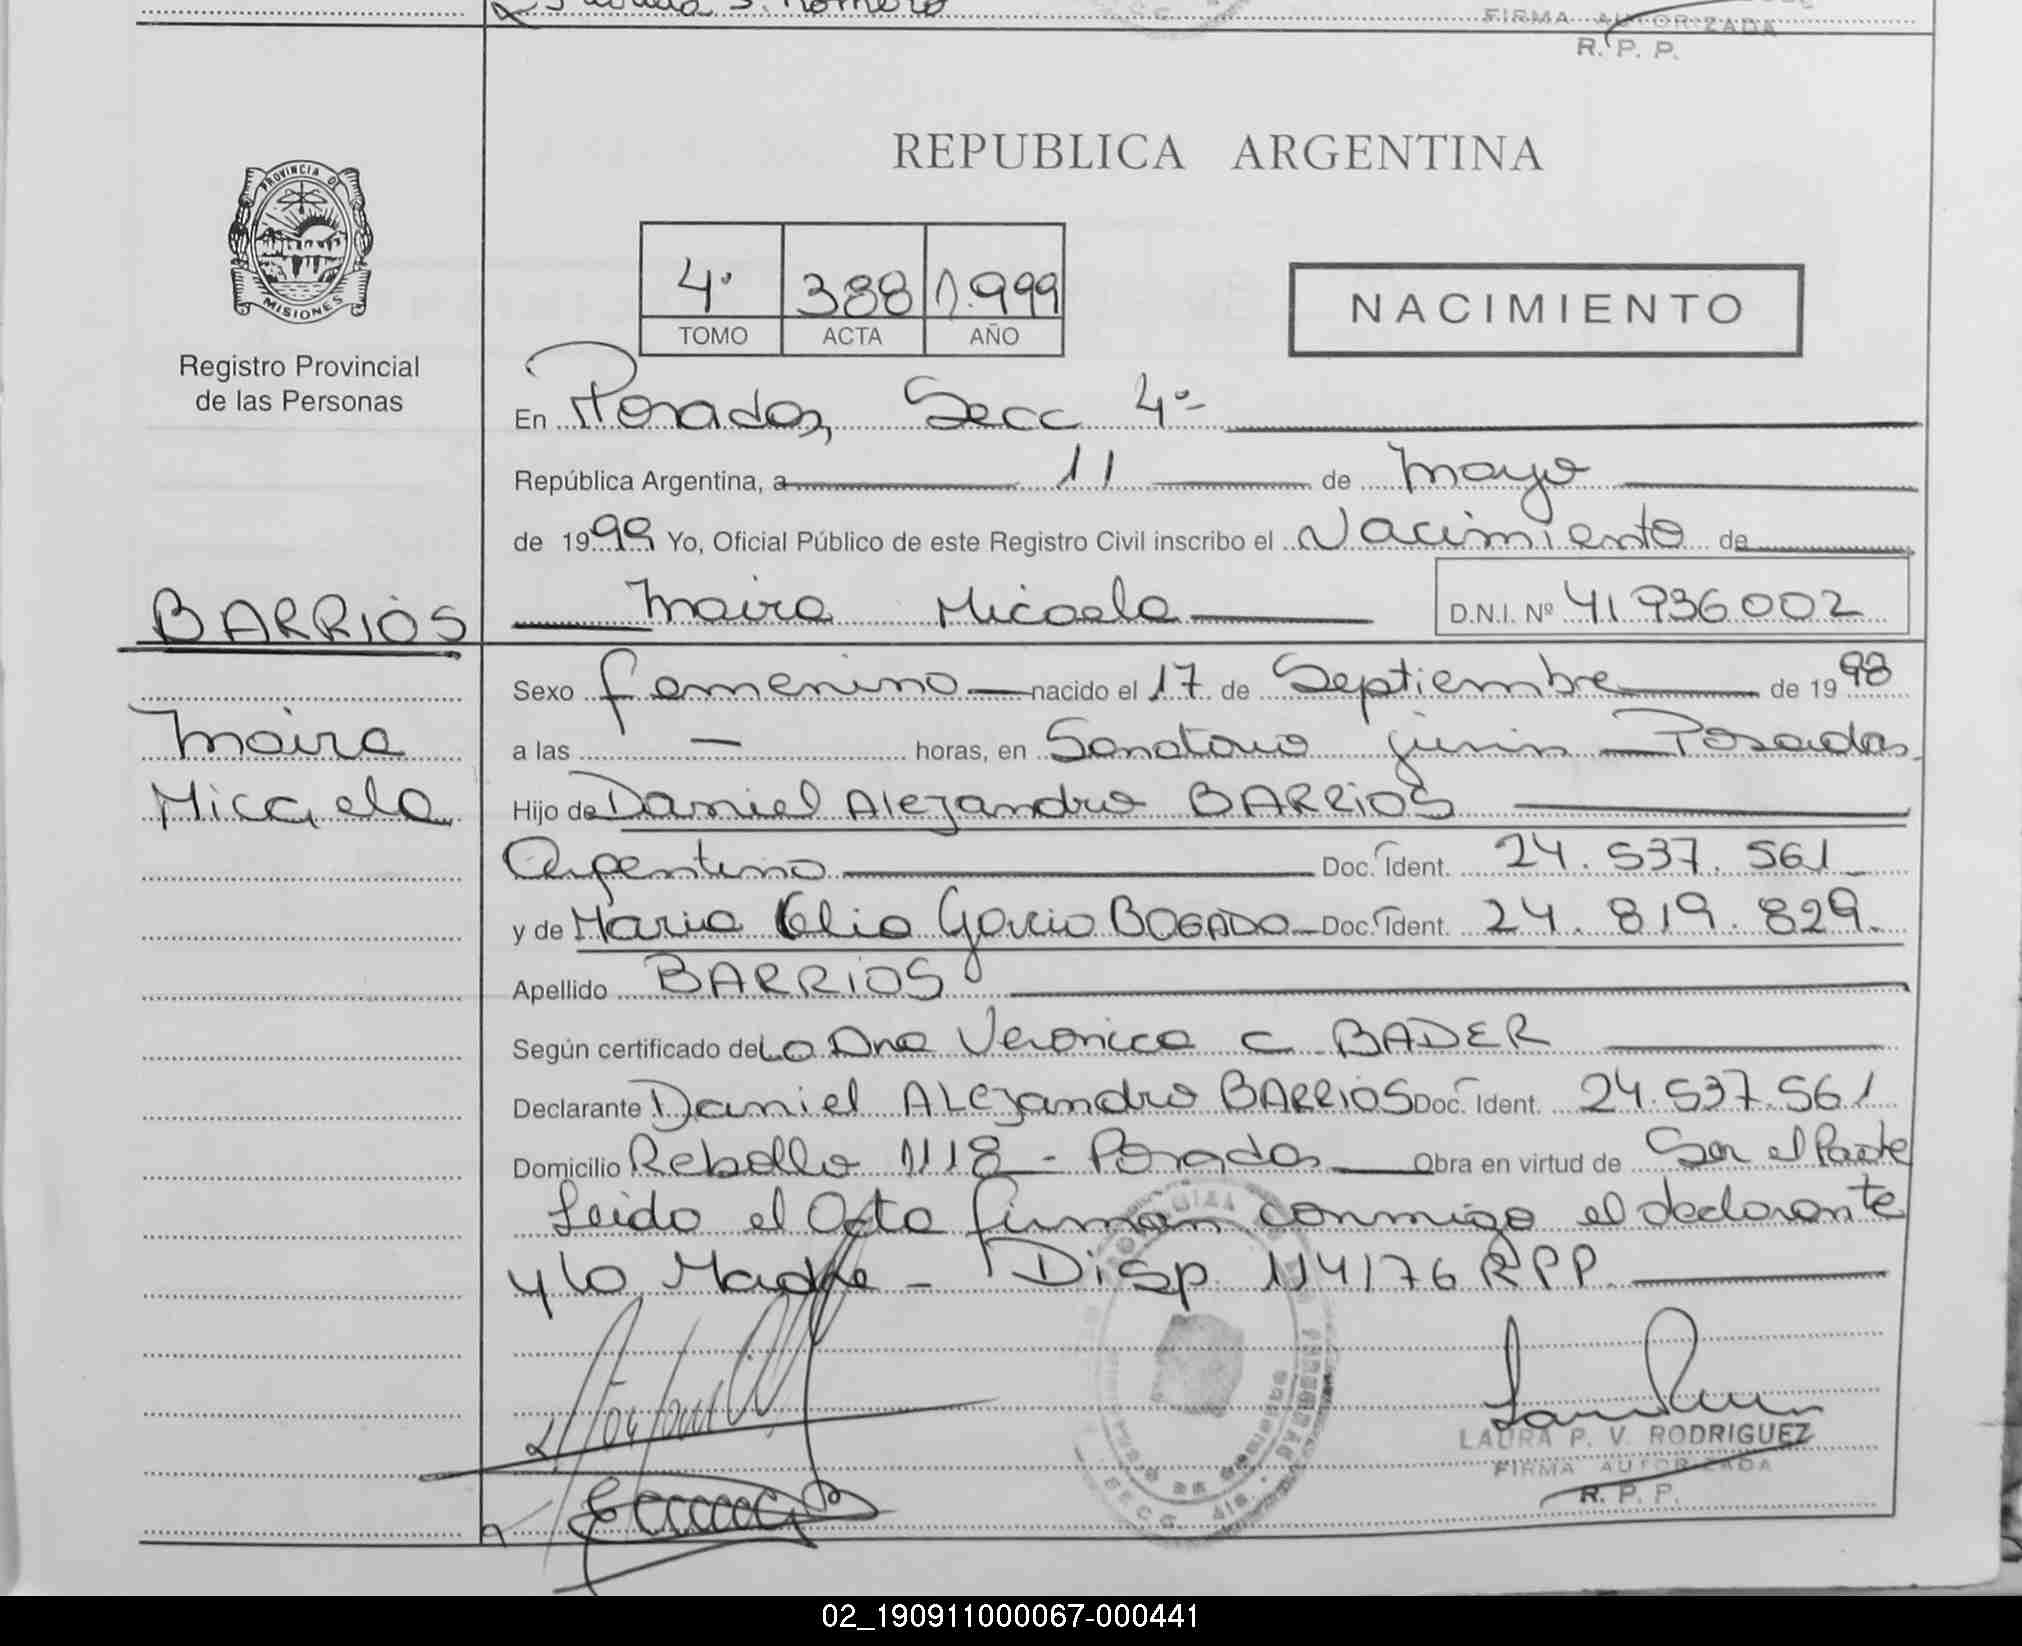 R. P. P.
FIRMA AUTORIZADA
PROVINCIA DE
MISIONES
Registro Provincial
de las Personas
REPUBLICA ARGENTINA
4º 388 1.999
TOMO ACTA AÑO
NACIMIENTO
En Posadas, Secc 4º
República Argentina, a 11 de Mayo
de 1999 Yo, Oficial Público de este Registro Civil inscribo el Nacimiento de
BARRIOS
Maira Micaela D.N.I. Nº 41.936.002
Maira
Micaela
Sexo femenino nacido el 17 de Septiembre de 1998
a las — horas, en Sanatorio junin — Posadas
Hijo de Daniel Alejandro BARRIOS
Argentino Doc. Ident. 24.537.561
y de Maria Elia Garcia BOGADO Doc. Ident. 24.819.829.
Apellido BARRIOS
Según certificado de La Dra Veronica C BADER
Declarante Daniel ALejandro BARRIOS Doc. Ident. 24.537.561
Domicilio Rebollo 1118 - Posadas Obra en virtud de Ser el Padre
Leido el Acta firman conmigo el declarante
y la Madre - Disp 114/76 RPP
LAURA P. V. RODRIGUEZ
FIRMA AUTORIZADA
R. P. P.
02_190911000067-000441